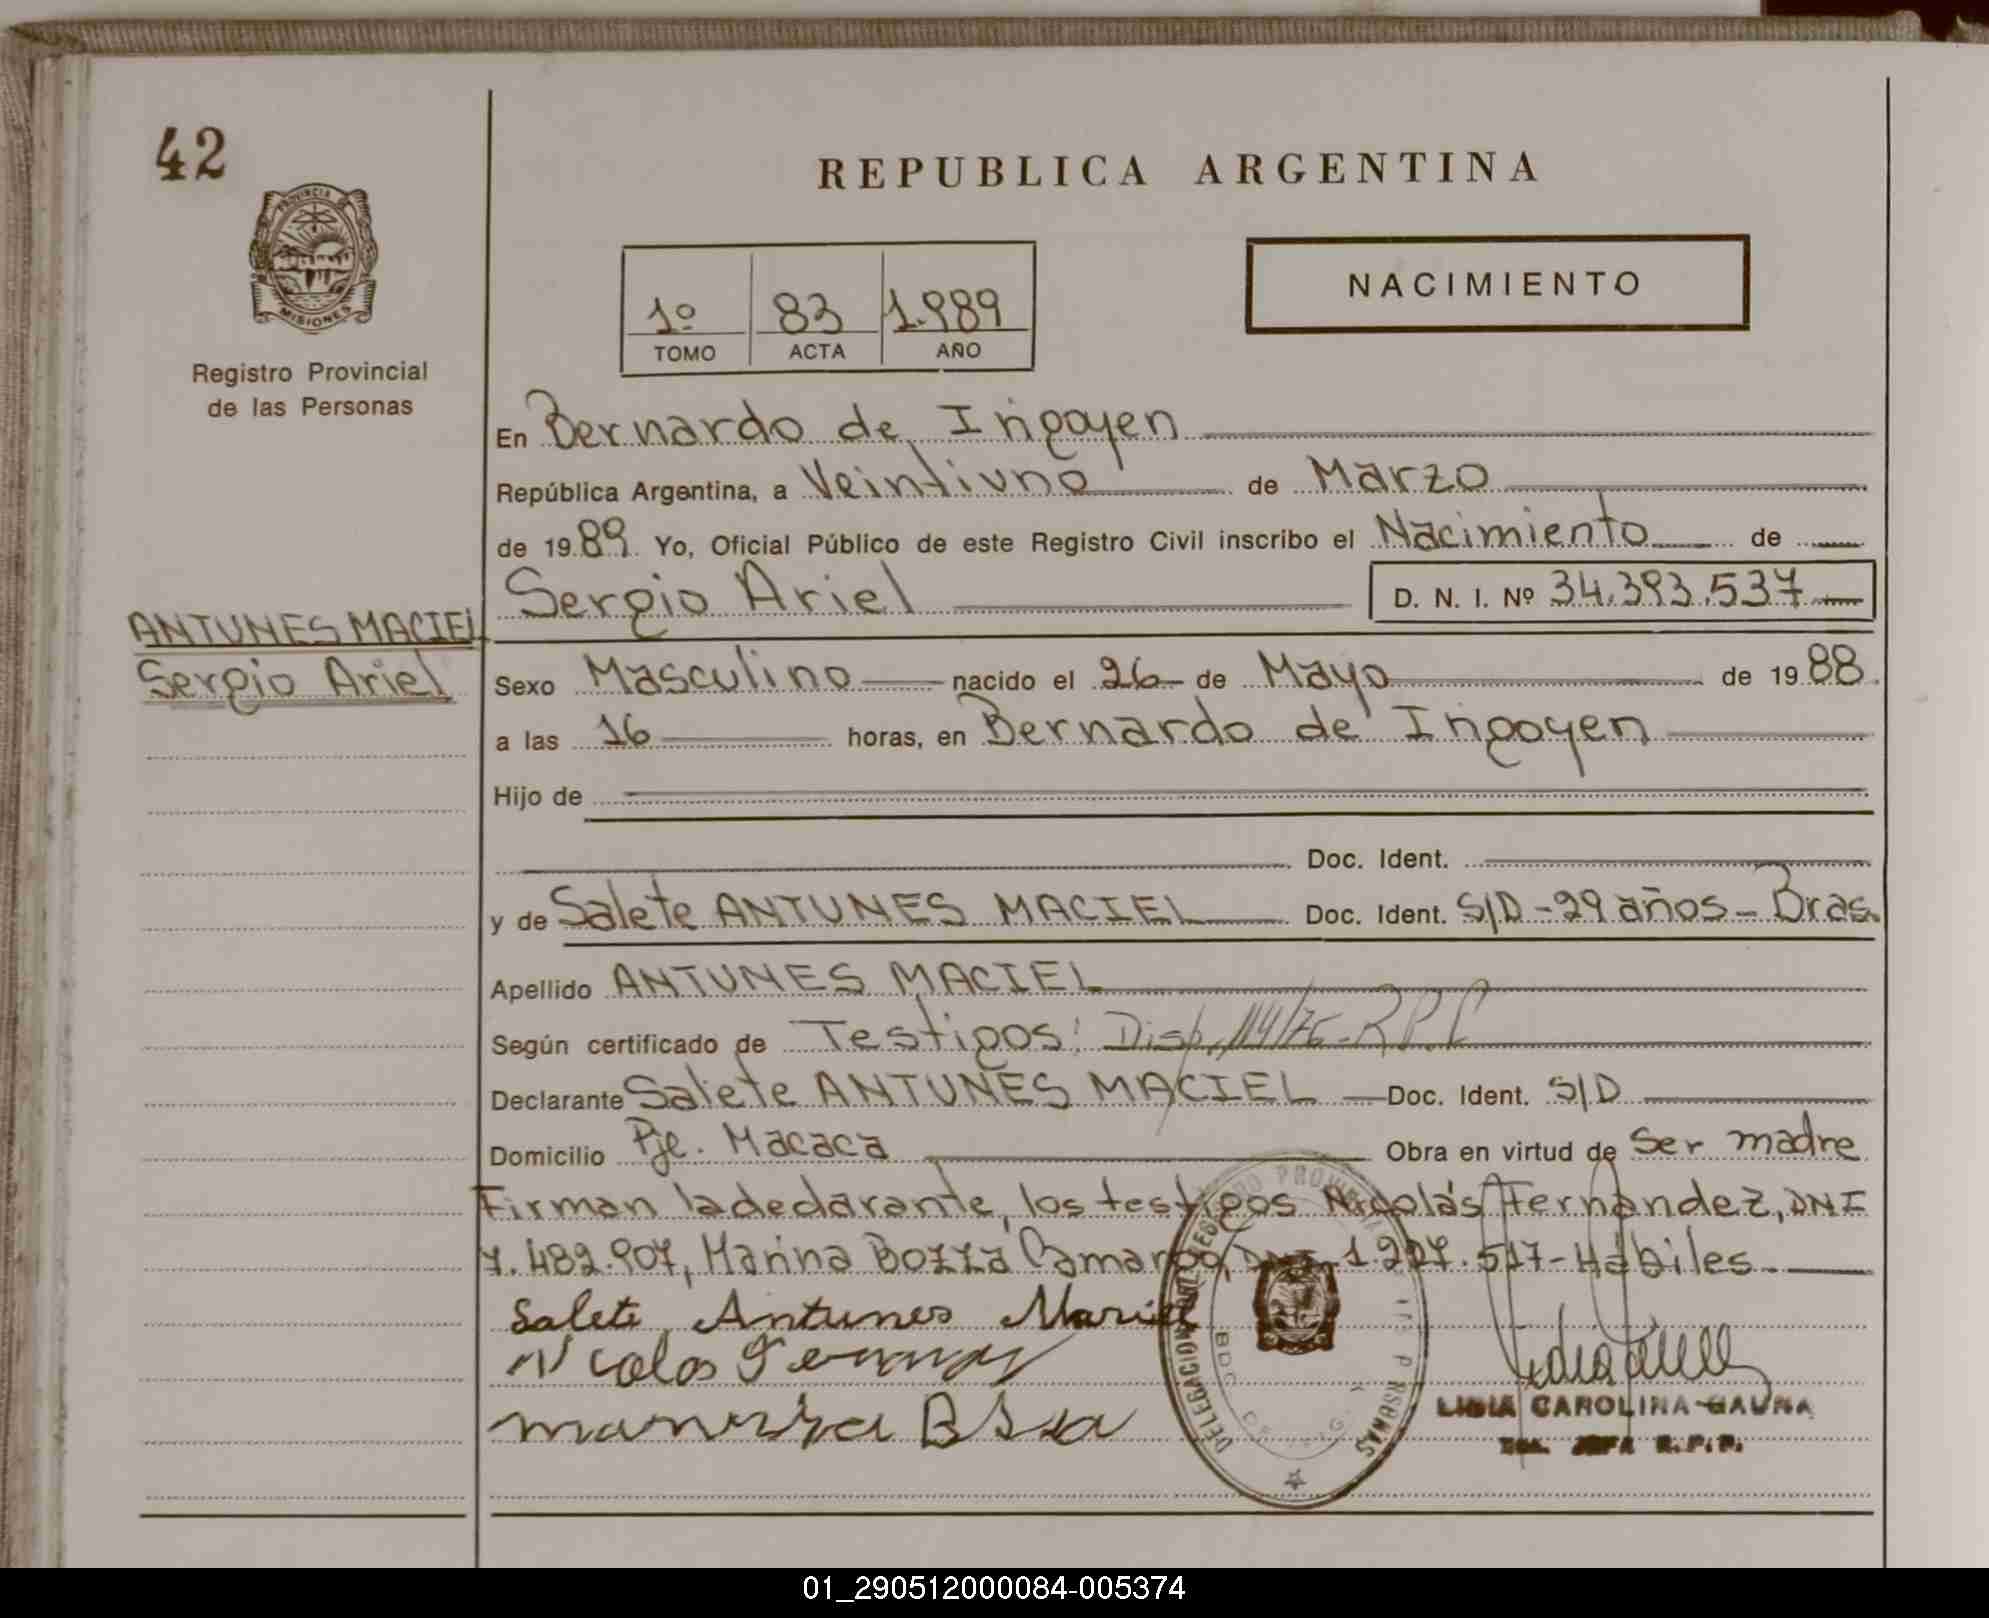 42
REPUBLICA ARGENTINA
PROVINCIA DE
MISIONES
Registro Provincial
de las Personas
1º 83 1.989
TOMO ACTA AÑO
NACIMIENTO
En Bernardo de Irigoyen
República Argentina, a Veintiuno de Marzo
de 1989. Yo, Oficial Público de este Registro Civil inscribo el Nacimiento de
Sergio Ariel D. N. I. Nº 34.393.537
ANTUNES MACIEL
Sergio Ariel
Sexo Masculino nacido el 26 de Mayo de 1988.
a las 16 horas, en Bernardo de Irigoyen
Hijo de
Doc. Ident.
y de Salete ANTUNES MACIEL Doc. Ident. S/D - 29 años - Bras.
Apellido ANTUNES MACIEL
Según certificado de Testigos: Disp. 114/76 - R.P.P
Declarante Salete ANTUNES MACIEL Doc. Ident. S/D
Domicilio Pje. Macaca Obra en virtud de Ser madre
Firman la declarante, los testigos Nicolás Fernández, DNI
7.482.907, Marina Bozza Camargo, DNI 1.227.517 - Hábiles.
Salete Antunes Maciel
Nicolas
LIDIA CAROLINA GAUNA
JEFA R.P.P.
01_290512000084-005374